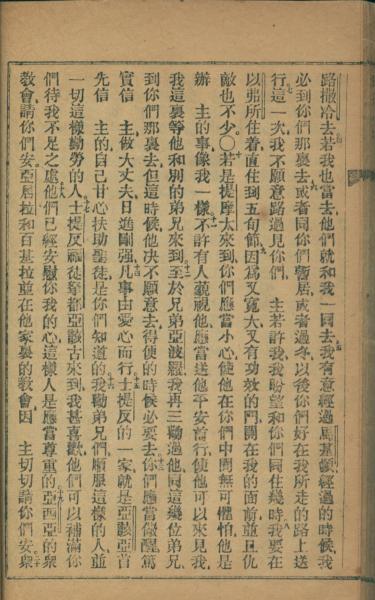 路撒冷去若我也當去他們就和我一同去我有意經過馬基頓經過的時候我
必到你們那裏去或者同你們暫居或者過冬以後你們好在我所走的路上送
行這一次我不願意路過見你們 主若許我我盼望和你們同住幾時我要在
以弗所住着直住到五旬節因爲又寬大又有功效的門開在我的面前並且仇
敵也不少〇若是提摩太來到你們應當小心使他在你們中間無可懼怕他是
辦 主的事像我一樣不許有人藐視他應當送他平安前行使他可以來見我
我這裏等他和別的弟兄來到至於兄弟亞波羅我再三勸過他同這幾位弟兄
到你們那裏去但這時候他决不願意去得便的時候必要去你們應當儆醒篤
實信 主做大丈夫日進剛强凡事由愛心而行士提反的一家就是亞該亞首
先信 主的自己甘心扶助聖徒是你們知道的我勸弟兄們順服這樣的人並
一切這樣勤勞的人士提反福徒拿都亞該古來到我甚喜歡他們可以補滿你
們待我不足之處他們已經安慰你我的心這樣人是應當尊重的亞西亞的衆
教會請你們安亞居拉和百基拉並在他家裏的教會因 主切切請你們安衆